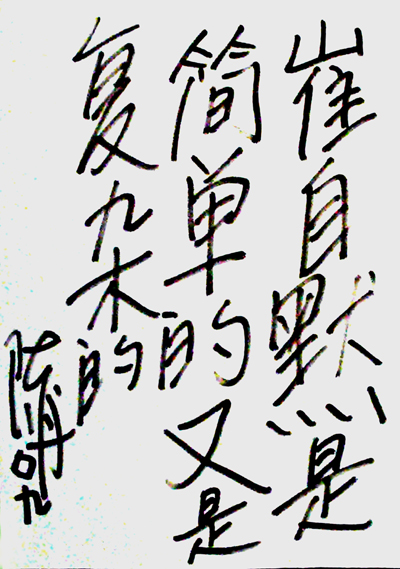 崔自默是
简单的又是
复杂的